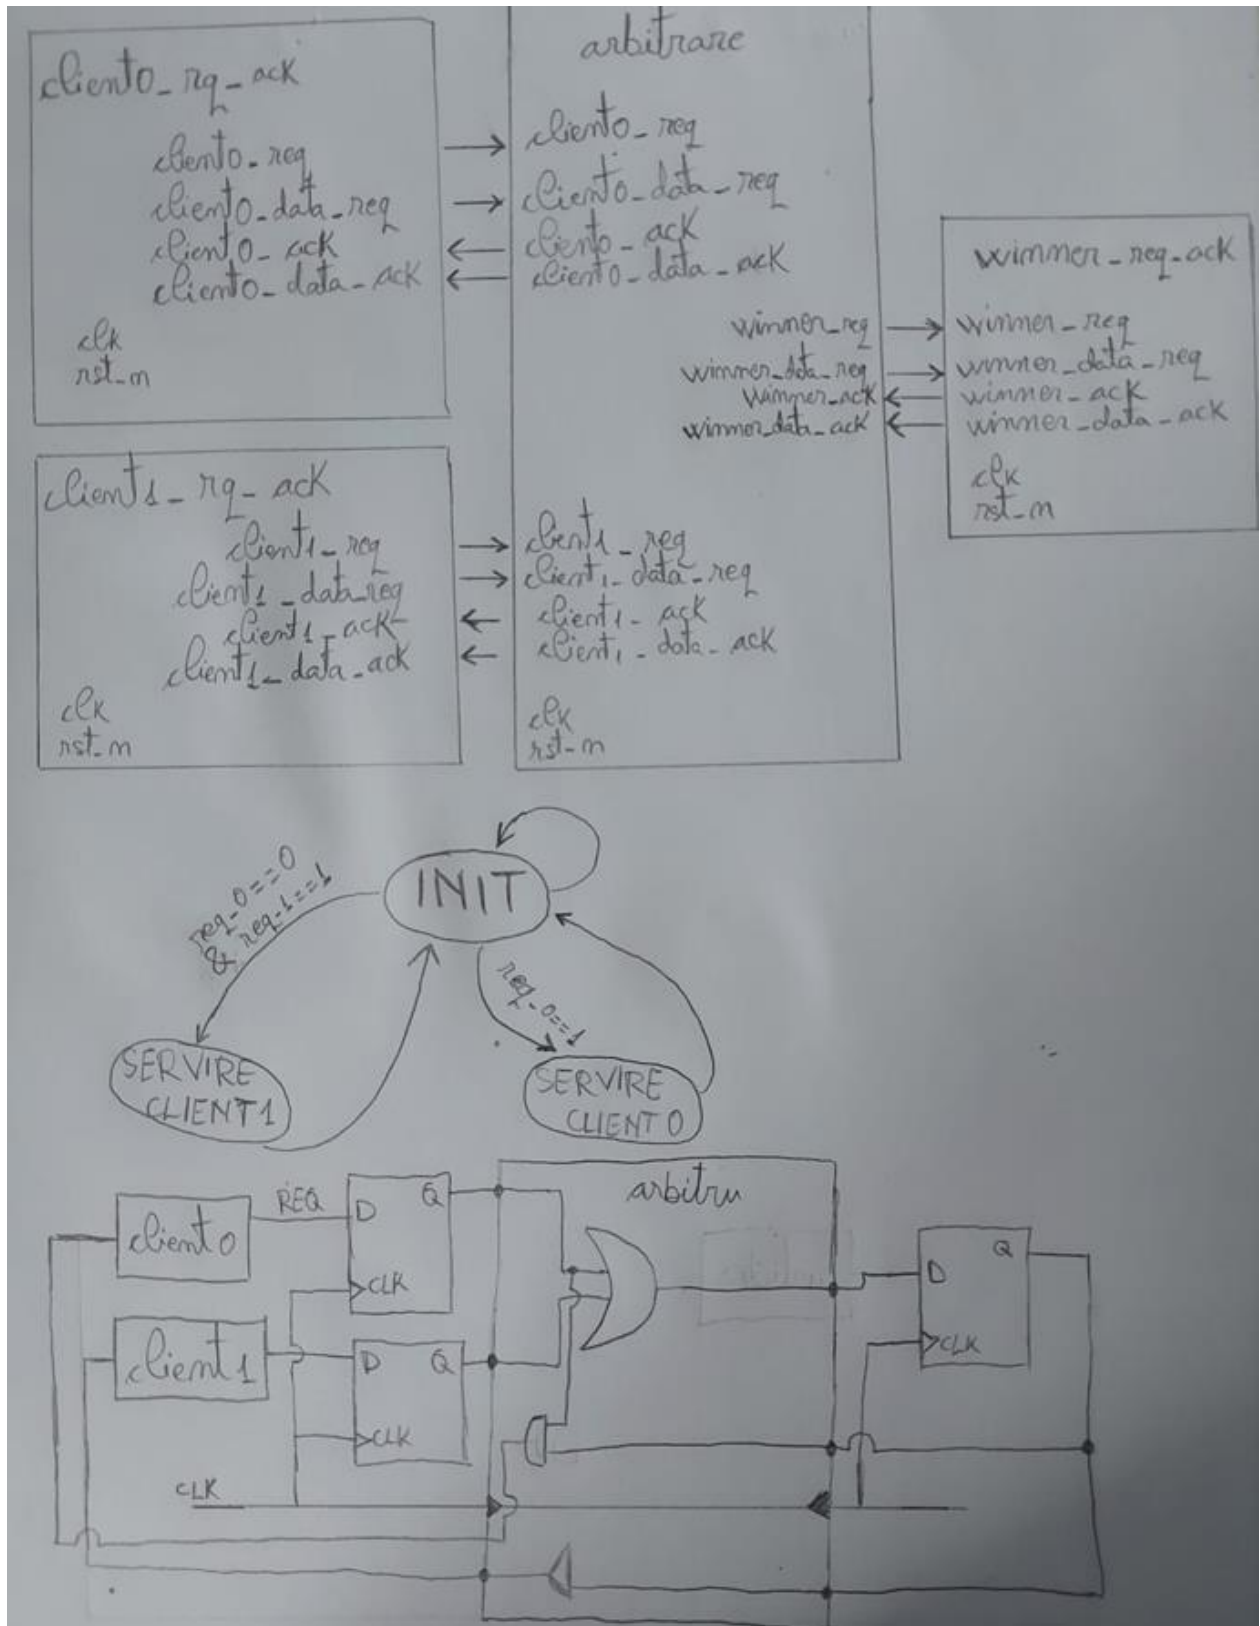 client0_rq_ack
client0_req
client0_data_req
client0_ack
client0_data_ack
clk
rst_n
arbitrare
client0_req
client0_data_req
client0_ack
client0_data_ack
winner_req
winner_data_req
winner_ack
winner_data_ack
winner_req_ack
winner_req
winner_data_req
winner_ack
winner_data_ack
clk
rst_n
client1_rq_ack
client1_req
client1_data_req
client1_ack
client1_data_ack
clk
rst_n
client1_req
client1_data_req
client1_ack
client1_data_ack
clk
rst_n
INIT
req_0==0
& req_1==1
req_0==1
SERVIRE
CLIENT1
SERVIRE
CLIENT0
client0
REQ
D
Q
CLK
arbitru
D
Q
CLK
client1
D
Q
CLK
CLK